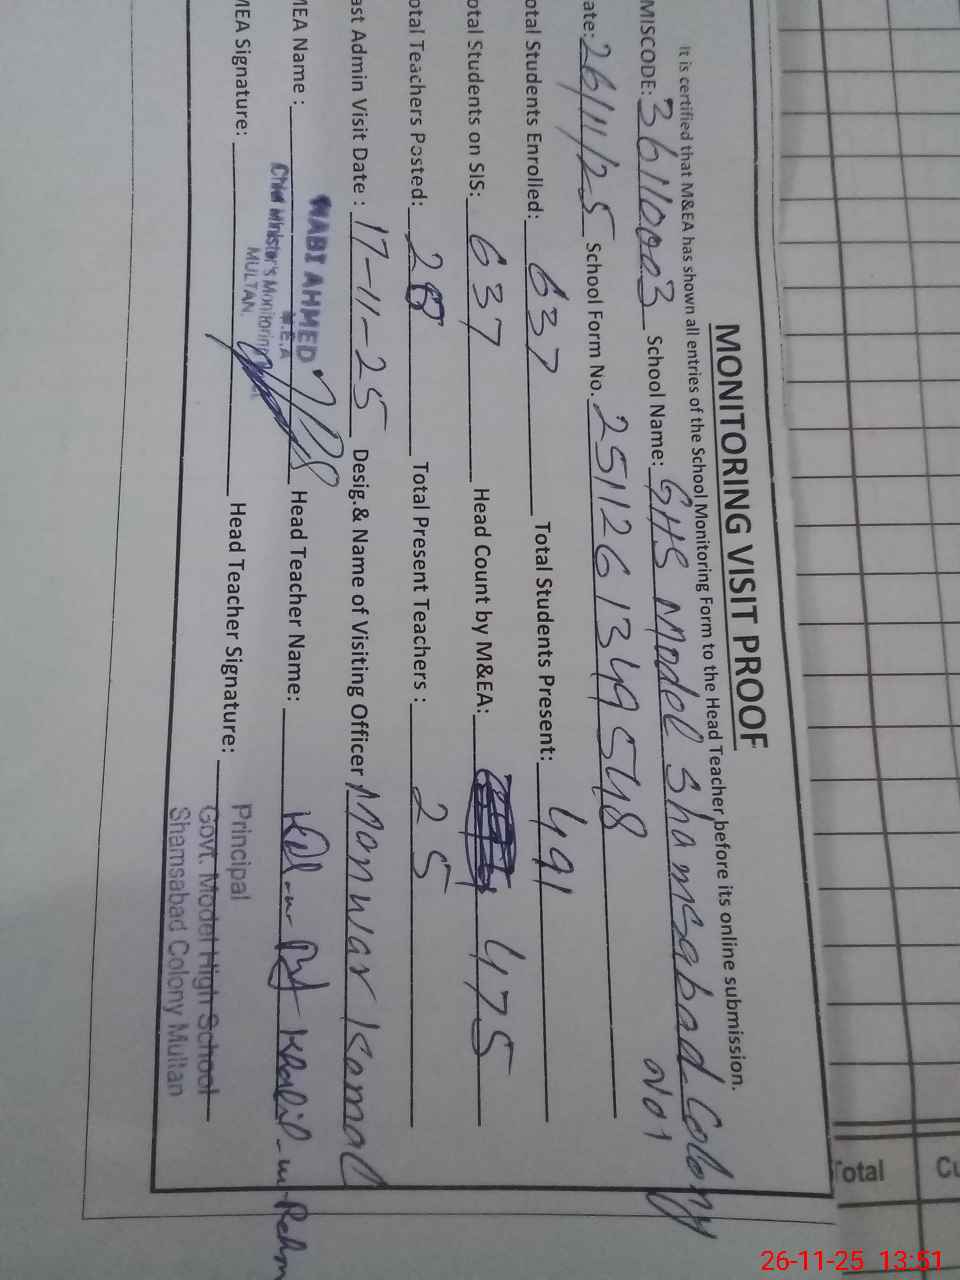 MONITORING VISIT PROOF
It is certified that M&EA has shown all entries of the School Monitoring Form to the Head Teacher before its online submission.
MISCODE: 36110003 School Name: GHS Model Shamsabad Colony
No 1
ate: 26/11/25 School Form No. 2511261349548
otal Students Enrolled: 637 Total Students Present: 491
otal Students on SIS: 637 Head Count by M&EA: 475
otal Teachers Posted: 28 Total Present Teachers : 25
ast Admin Visit Date : 17-11-25 Desig.& Name of Visiting Officer Monwar Kamal
MEA Name : NABI AHMED Head Teacher Name: Khalil-ur-Rehm
M.E.A
Chief Minister's Monitoring
MULTAN.
MEA Signature: Head Teacher Signature:
Principal
Govt. Model High School
Shamsabad Colony Multan
Total
Cu
26-11-25 13:51